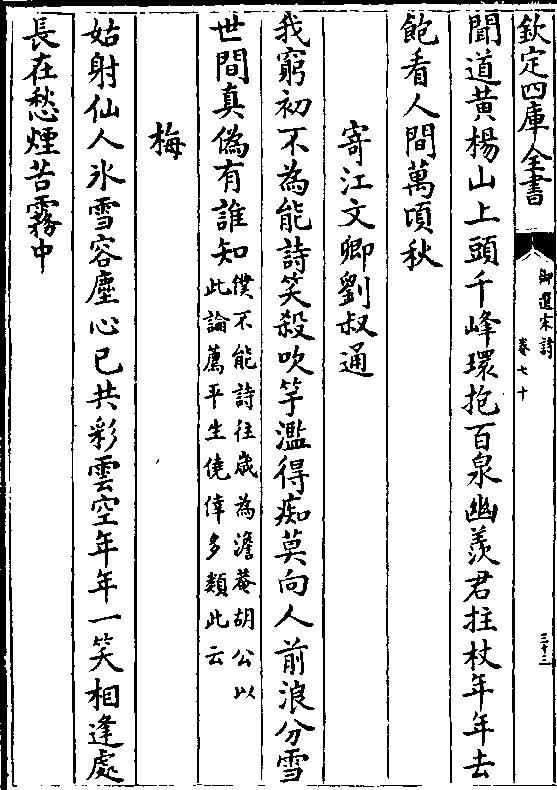 欽定四庫全書
御選宋詩
卷七十
三十三
聞道黃楊山上頭千峰環抱百泉幽羨君拄杖年年去
飽看人間萬頃秋
寄江文卿劉叔通
我窮初不為能詩笑殺吹竽濫得痴莫向人前浪分雪
世間真偽有誰知僕不能詩往歲為澹菴胡公以
此論薦平生僥倖多類此云
梅
姑射仙人氷雪容塵心已共彩雲空年年一笑相逢處
長在愁煙苦霧中